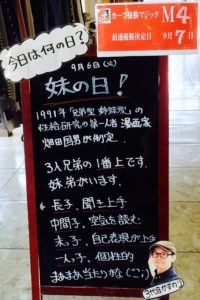 カープ優勝マジック
M4
最速優勝決定日
9月7日
今日は何の日?
9月6日(火)
妹の日!
1991年「兄弟型 姉妹型」の
性格研究の第一人者 漫画家
畑田国男が制定。
3人兄弟の1番上です。
妹、弟がいます。
長子、聞き上手
中間子、空気を読む
末っ子、自己表現が上手
一人っ子、個性的
まあまあ当たりかな(^_^;)